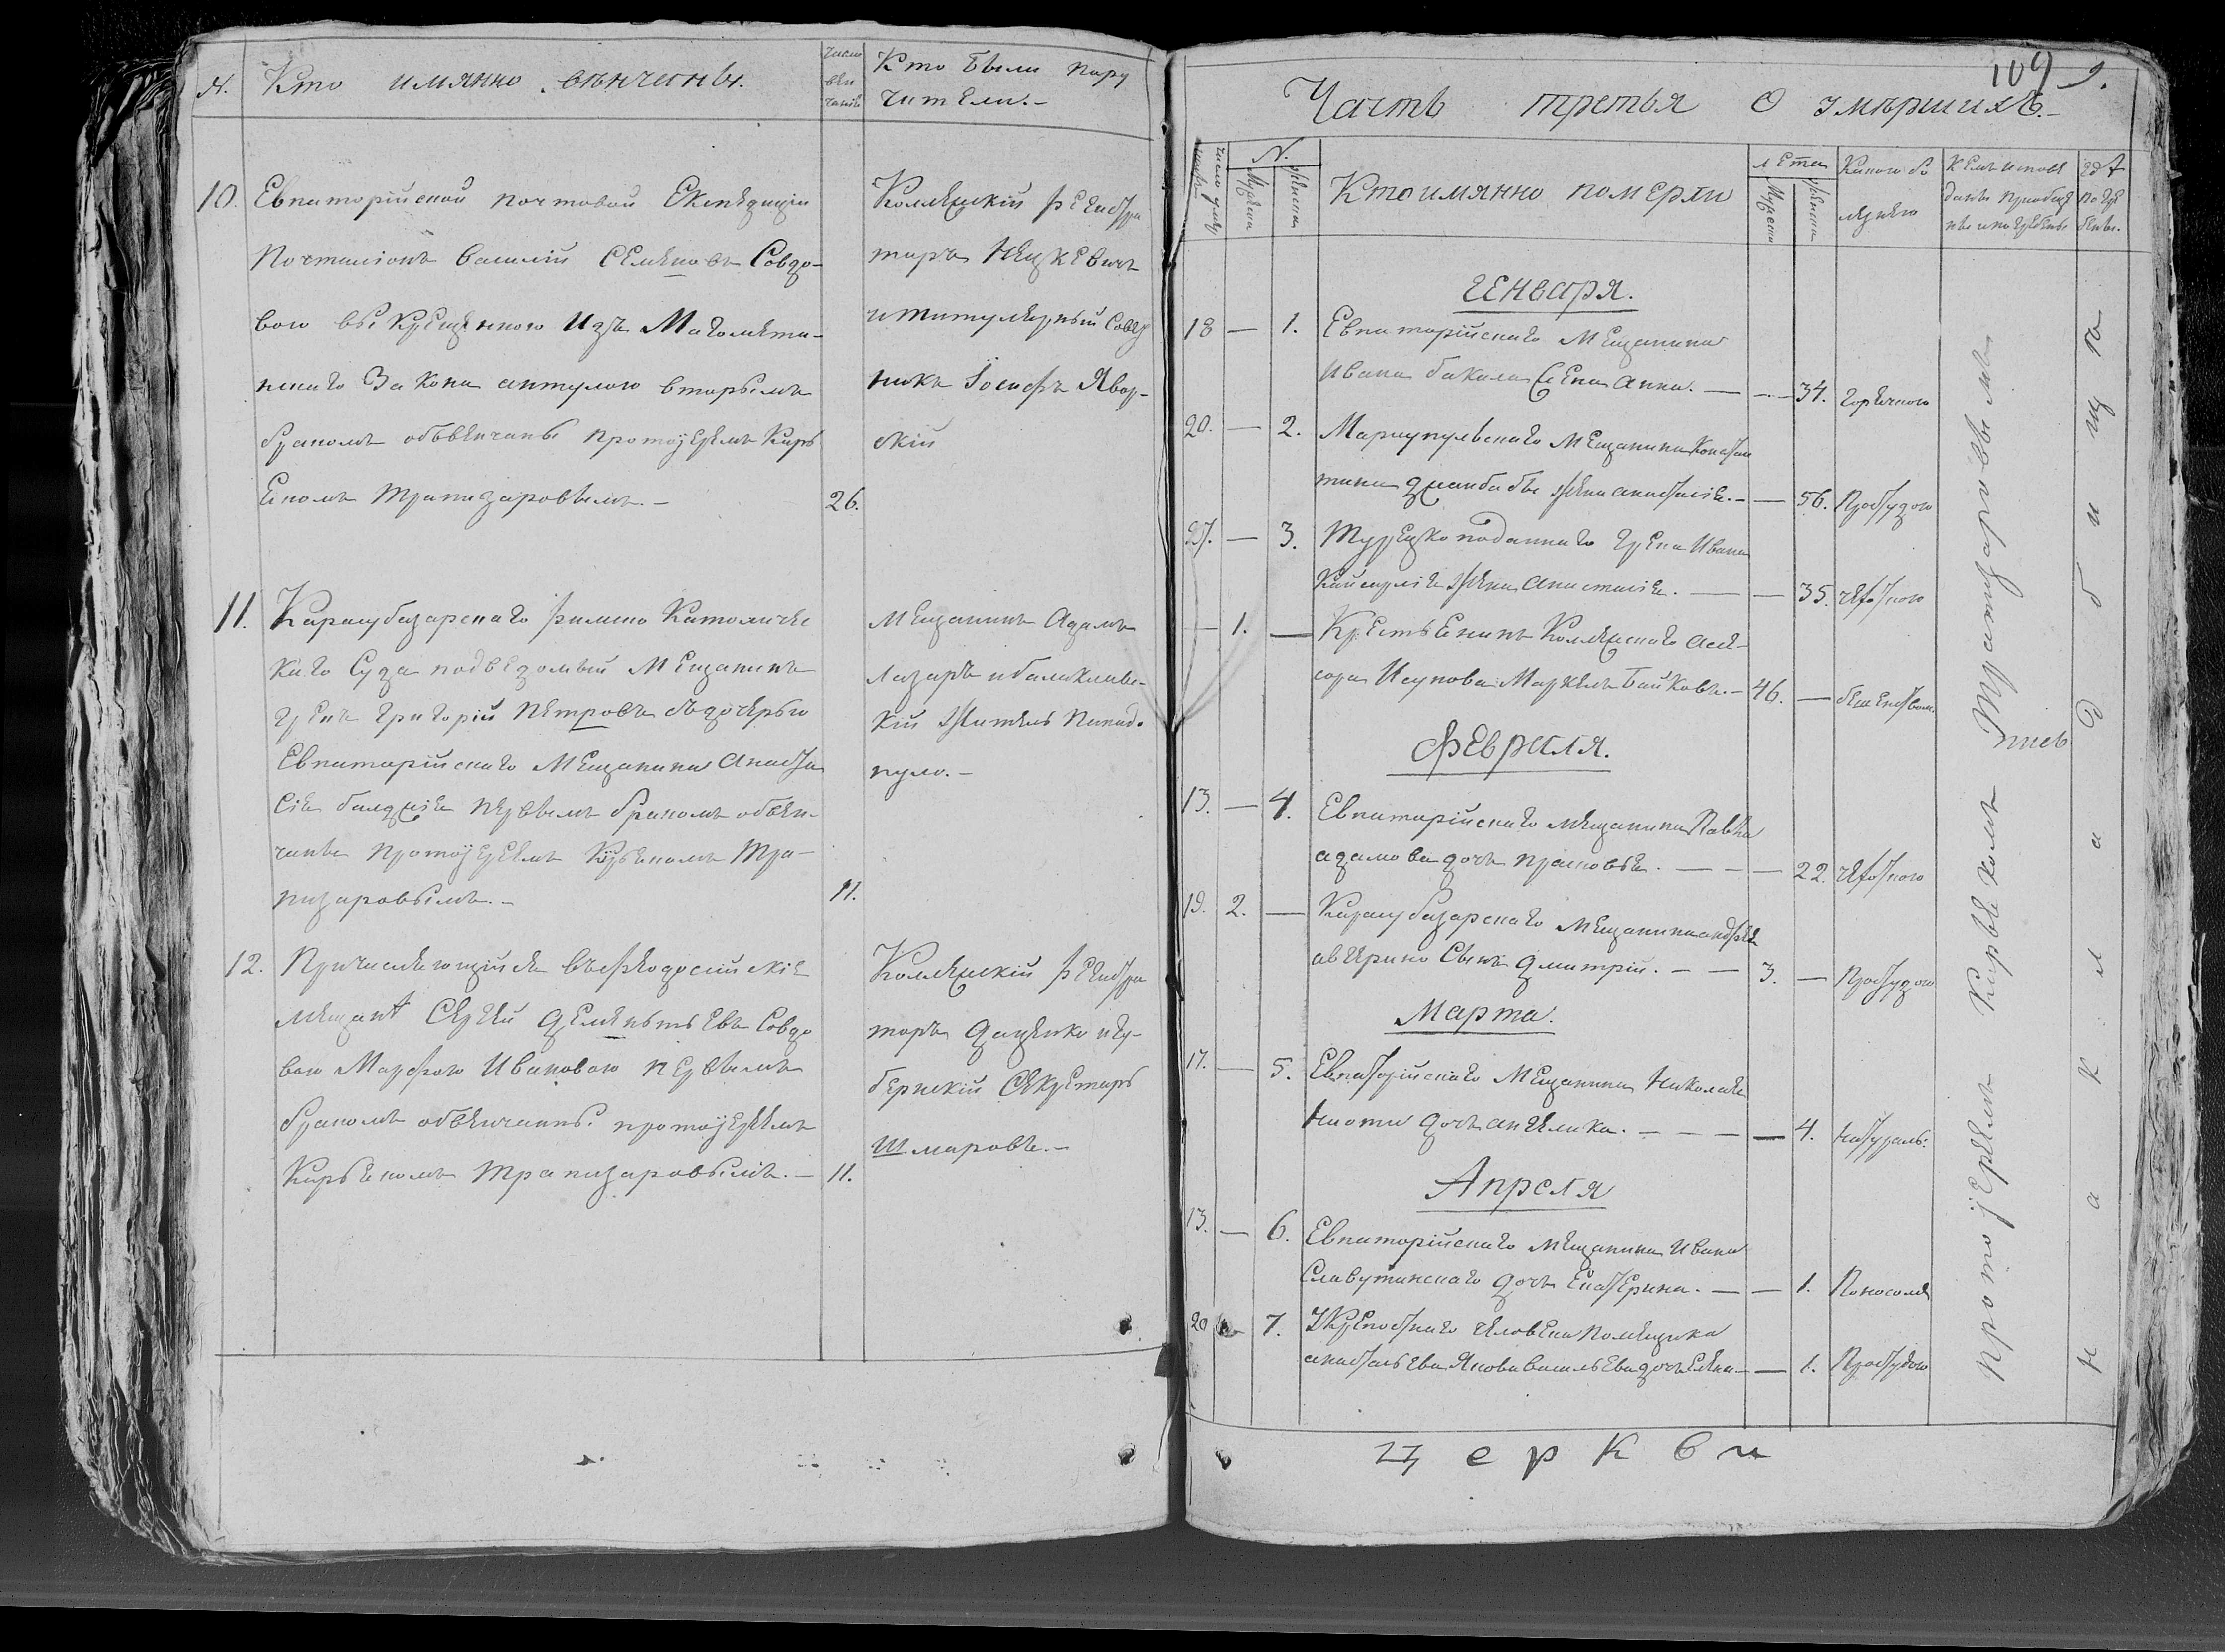 №. Кто имянно венчены.
число венчанiя
Кто были пору
чители.-
10. Евпаторiйской почтовой Експедицiи
Почталiонъ Василiй Семеновъ Совдо-
вою выкрещенною Изъ Магомета-
нскаго Закона вторымъ
бракомъ обвенчаны протоiереемъ Кирь
Екомъ Трапизаровымъ.- 26.
Коллежскiй регистра
торъ Нецкевичъ
и титулярный Совет
никъ Iосифъ Явор-
скiй
11. Карасубазарскаго римско Католичес
каго Суда подведомый Мещанинъ
Грекъ Григорiй Петровъ съ дочерью
Евпаторiйскаго Мещанина Анаста
сiя первымъ бракомъ обвен-
чаны протоiереемъ Курьекомъ Тра-
пизаровымъ.- 11.
Мещанинъ Адамъ
Лазаръ и балаклавс-
кiй житель
пуло.-
12. Причисляющiйся въ феодосiйскiе
мещане Сергей Дементьевъ Совдо
вою Марфою Ивановою первымъ
бракомъ обвенчаны протоiереемъ
Кирьекомъ Трапизаровымъ.- 11.
Коллежскiй регистра
торъ Даценко и гу-
бернскiй Секретарь
Шмаровъ.-
109 9.
Часть третья о умершихъ.-
число умер
№.
Мужеска
женска
Кто имянно померли
лета
Мужеска
женска
Какою бо
лезнею
Кемъ испове
даны прiобще
ны и погребены
где
погре
бены.
Генваря.
18 — 1. Евпаторiйскаго Мещанина
Ивана бакала жена Анна. — — 34. горячкою
20. — 2. Марiупульскаго Мещанина Констан
тина жена анастасiя.- — 56. Простудою
27. — 3. Турецко поданнаго грека Ивана
жена Анастасiя. — — 35. чехоткою
— 1. — Крестьенинъ Коллежскаго асе-
сора Исупова Маркелъ Байковъ.- 46. —
Февраля.
13. — 4. Евпаторiйскаго мещанина Павла
адамова дочь прасковья. — — — 22. чехоткою
19. 2. — Карасубазарскаго Мещанина андрея
аверино Сынъ Дмитрiй. — — 3. — Простудою
Марта.
17. — 5. Евпаторiйскаго Мещанина Николая
Ниоти дочь ангелика. — — — — 4. натураль:
Апреля
13. — 6. Евпаторiйскаго мещанина Ивана
Славутинскаго дочь Екатерина. — — 1. Поносомъ
20 — 7. Укрепостнаго человека Помещика
анастасьева Якова Васильева дочь Елена — — 1. Простудою
Протоiереемъ Кирьекомъ Трапизаровымъ
На кладбища
церкви